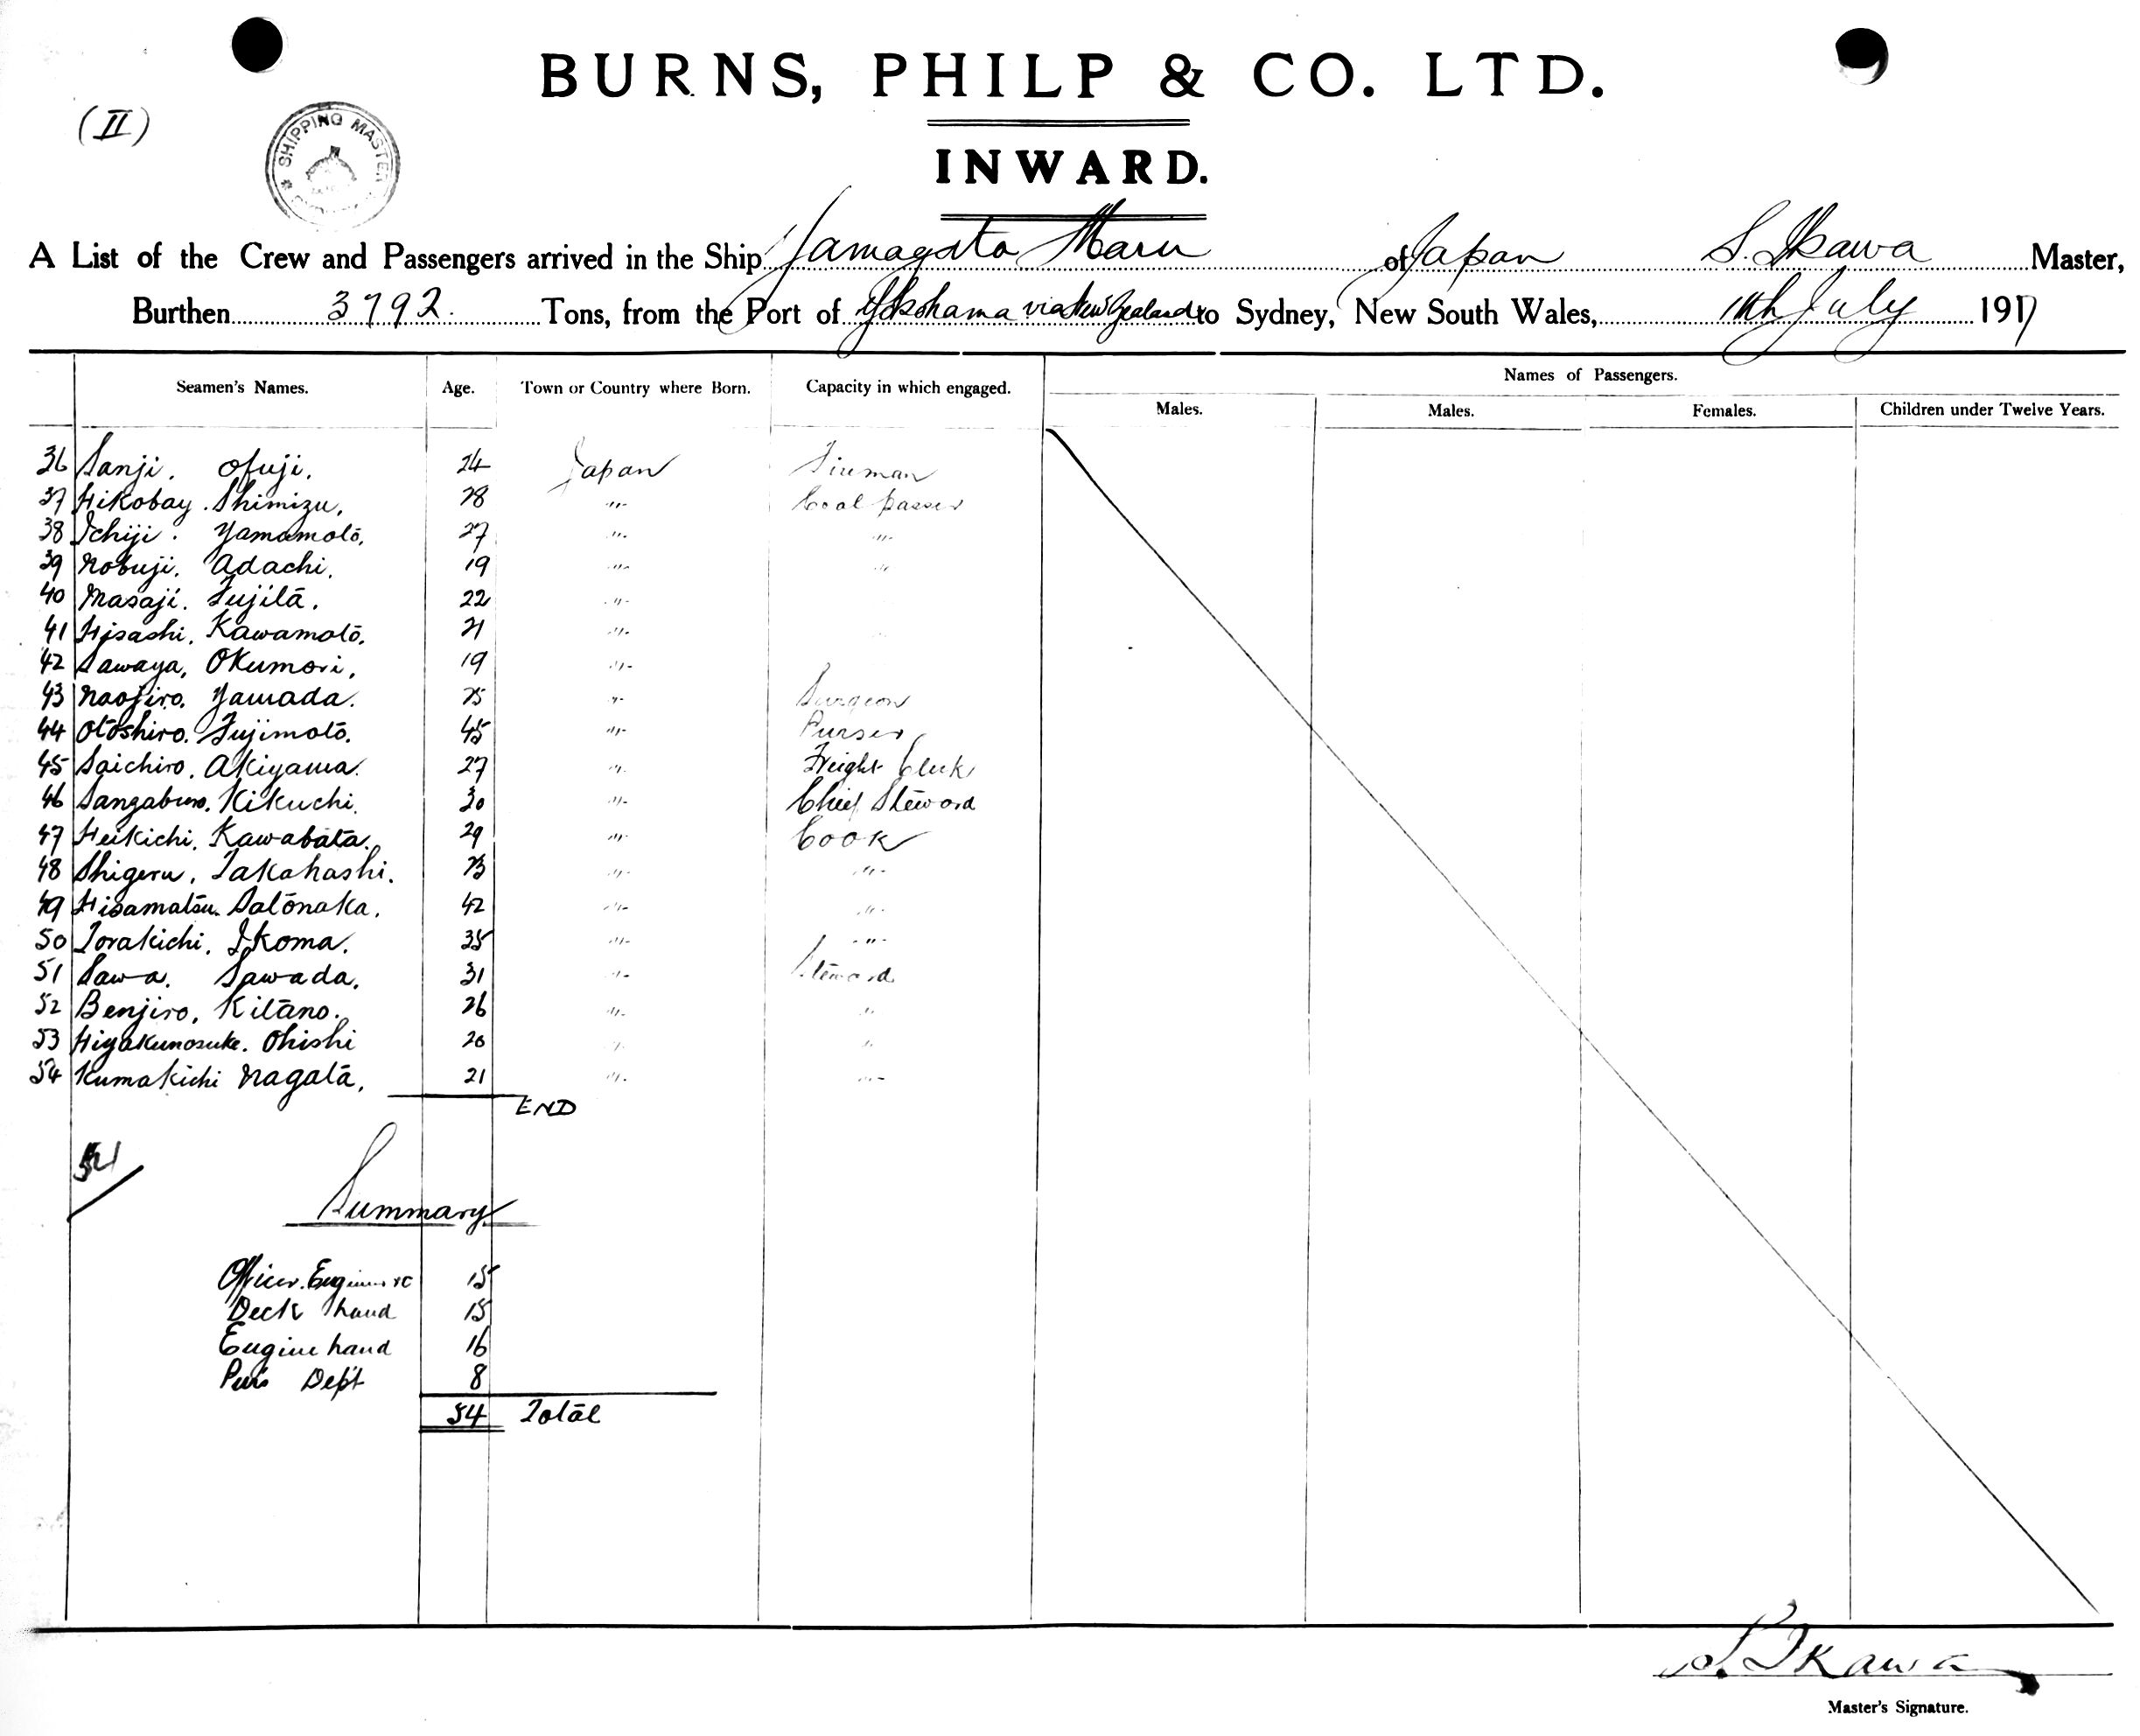 BURNS, PHILP & CO. LTD.
(II)
SHIPPING MASTER
INWARD.
A List of the Crew and Passengers arrived in the Ship Yamagata Maru of Japan S. Ikawa Master,
Burthen 3792. Tons, from the Port of Yokohama via New Zealand to Sydney, New South Wales, 11th July 1917
Names of Passengers.
Seamen's Names. Age. Town or Country where Born. Capacity in which engaged.
Males. Males. Females. Children under Twelve Years.
36 Sanji. Ofuji. 24 Japan Fireman
37 Hikobay. Shimizu. 28 -"- Coal passer
38 Ichiji. Yamamoto. 27 -"- -"-
39 Nobuji. Adachi. 19 -"- -"-
40 Masaji. Fujita. 22 -"-
41 Hisashi. Kawamoto. 21 -"-
42 Sawaya, Okumori. 19 -"-
43 Naojiro. Yamada. 25 -"- Surgeon
44 Otoshiro. Fujimoto. 45 -"- Purser
45 Saichiro. Akiyama. 27 -"- Freight Clerk
46 Sangaburo. Kikuchi. 30 -"- Chief Steward
47 Heikichi. Kawabata. 29 -"- Cook
48 Shigeru, Takahashi. 23 -"- -"-
49 Hisamatsu. Satonaka. 42 -"- -"-
50 Torakichi. Ikoma. 35 -"- -"-
51 Sawa. Sawada. 31 -"- Steward
52 Benjiro, Kitano. 26 -"- -"-
53 Hiyakunosuke. Ohishi 20 -"- -"-
54 Kumakichi Nagata. 21 -"- -"-
END
54
Summary
Officer. Engineer &c 15
Deck hand 15
Engine hand 16
Purs Dept 8
54 Total
S. Ikawa
Master's Signature.